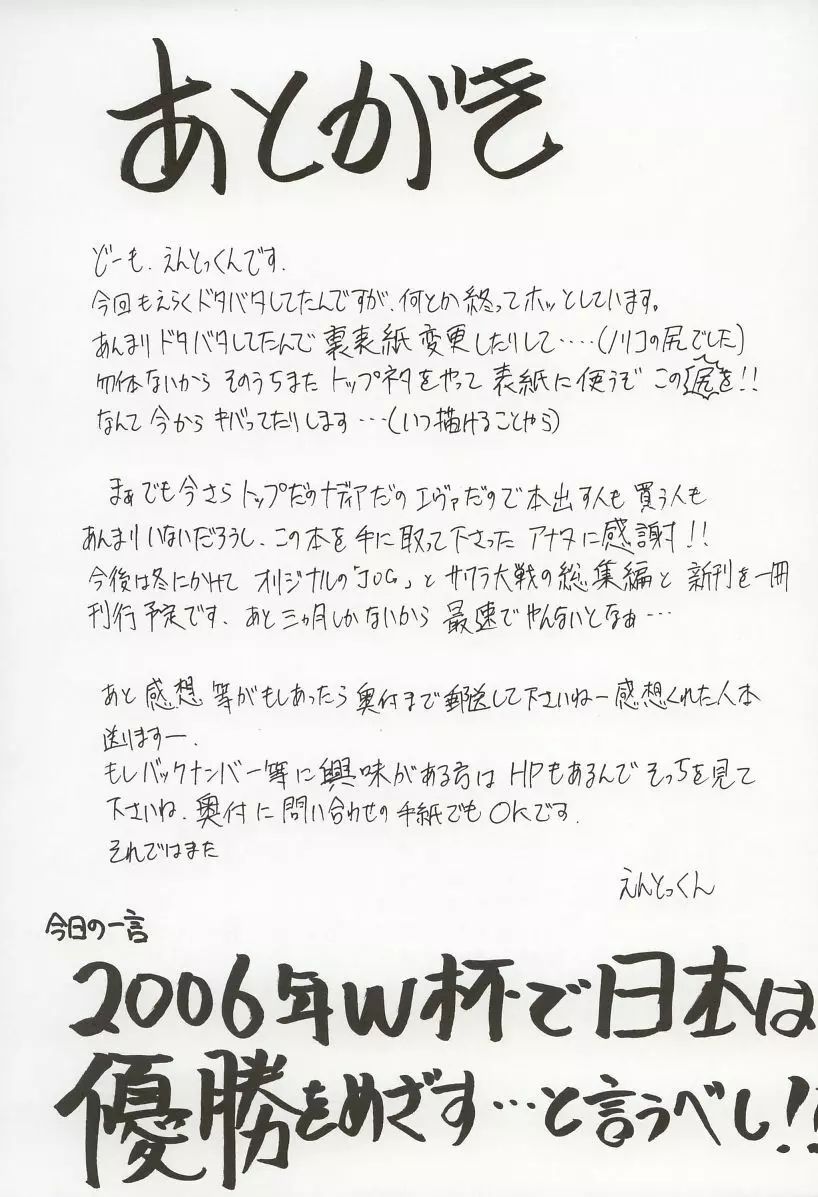 あとがき
どーも、えんとっくんです。
今回もえらくドタバタしてたんですが、何とか終ってホッとしています。
あんまりドタバタしてたんで裏表紙変更したりして‥‥(ノリコの尻でした)
勿体ないからそのうちまたトップネタをやって表紙に使うぞこの尻を!!
なんて今からキバってたりします…(いつ描けることやら)
まぁでも今さらトップだのナディアだのエヴァだので本出す人も買う人も
あんまりいないだろうし、この本を手に取って下さったアナタに感謝!!
今後は冬にかけてオリジナルの「JOG」とサクラ大戦の総集編と新刊を一冊
刊行予定です、あと三ヵ月しかないから最速でやんないとなぁ…
あと感想等がもしあったら奥付まで郵送して下さいねー感想くれた人本
送りますー、
もしバックナンバー等に興味がある方はHPもあるんでそっちを見て
下さいね、奥付に問い合わせの手紙でもOKです。
それではまた
えんとっくん
今日の一言
2006年W杯で日本は
優勝をめざす…と言うべし!!